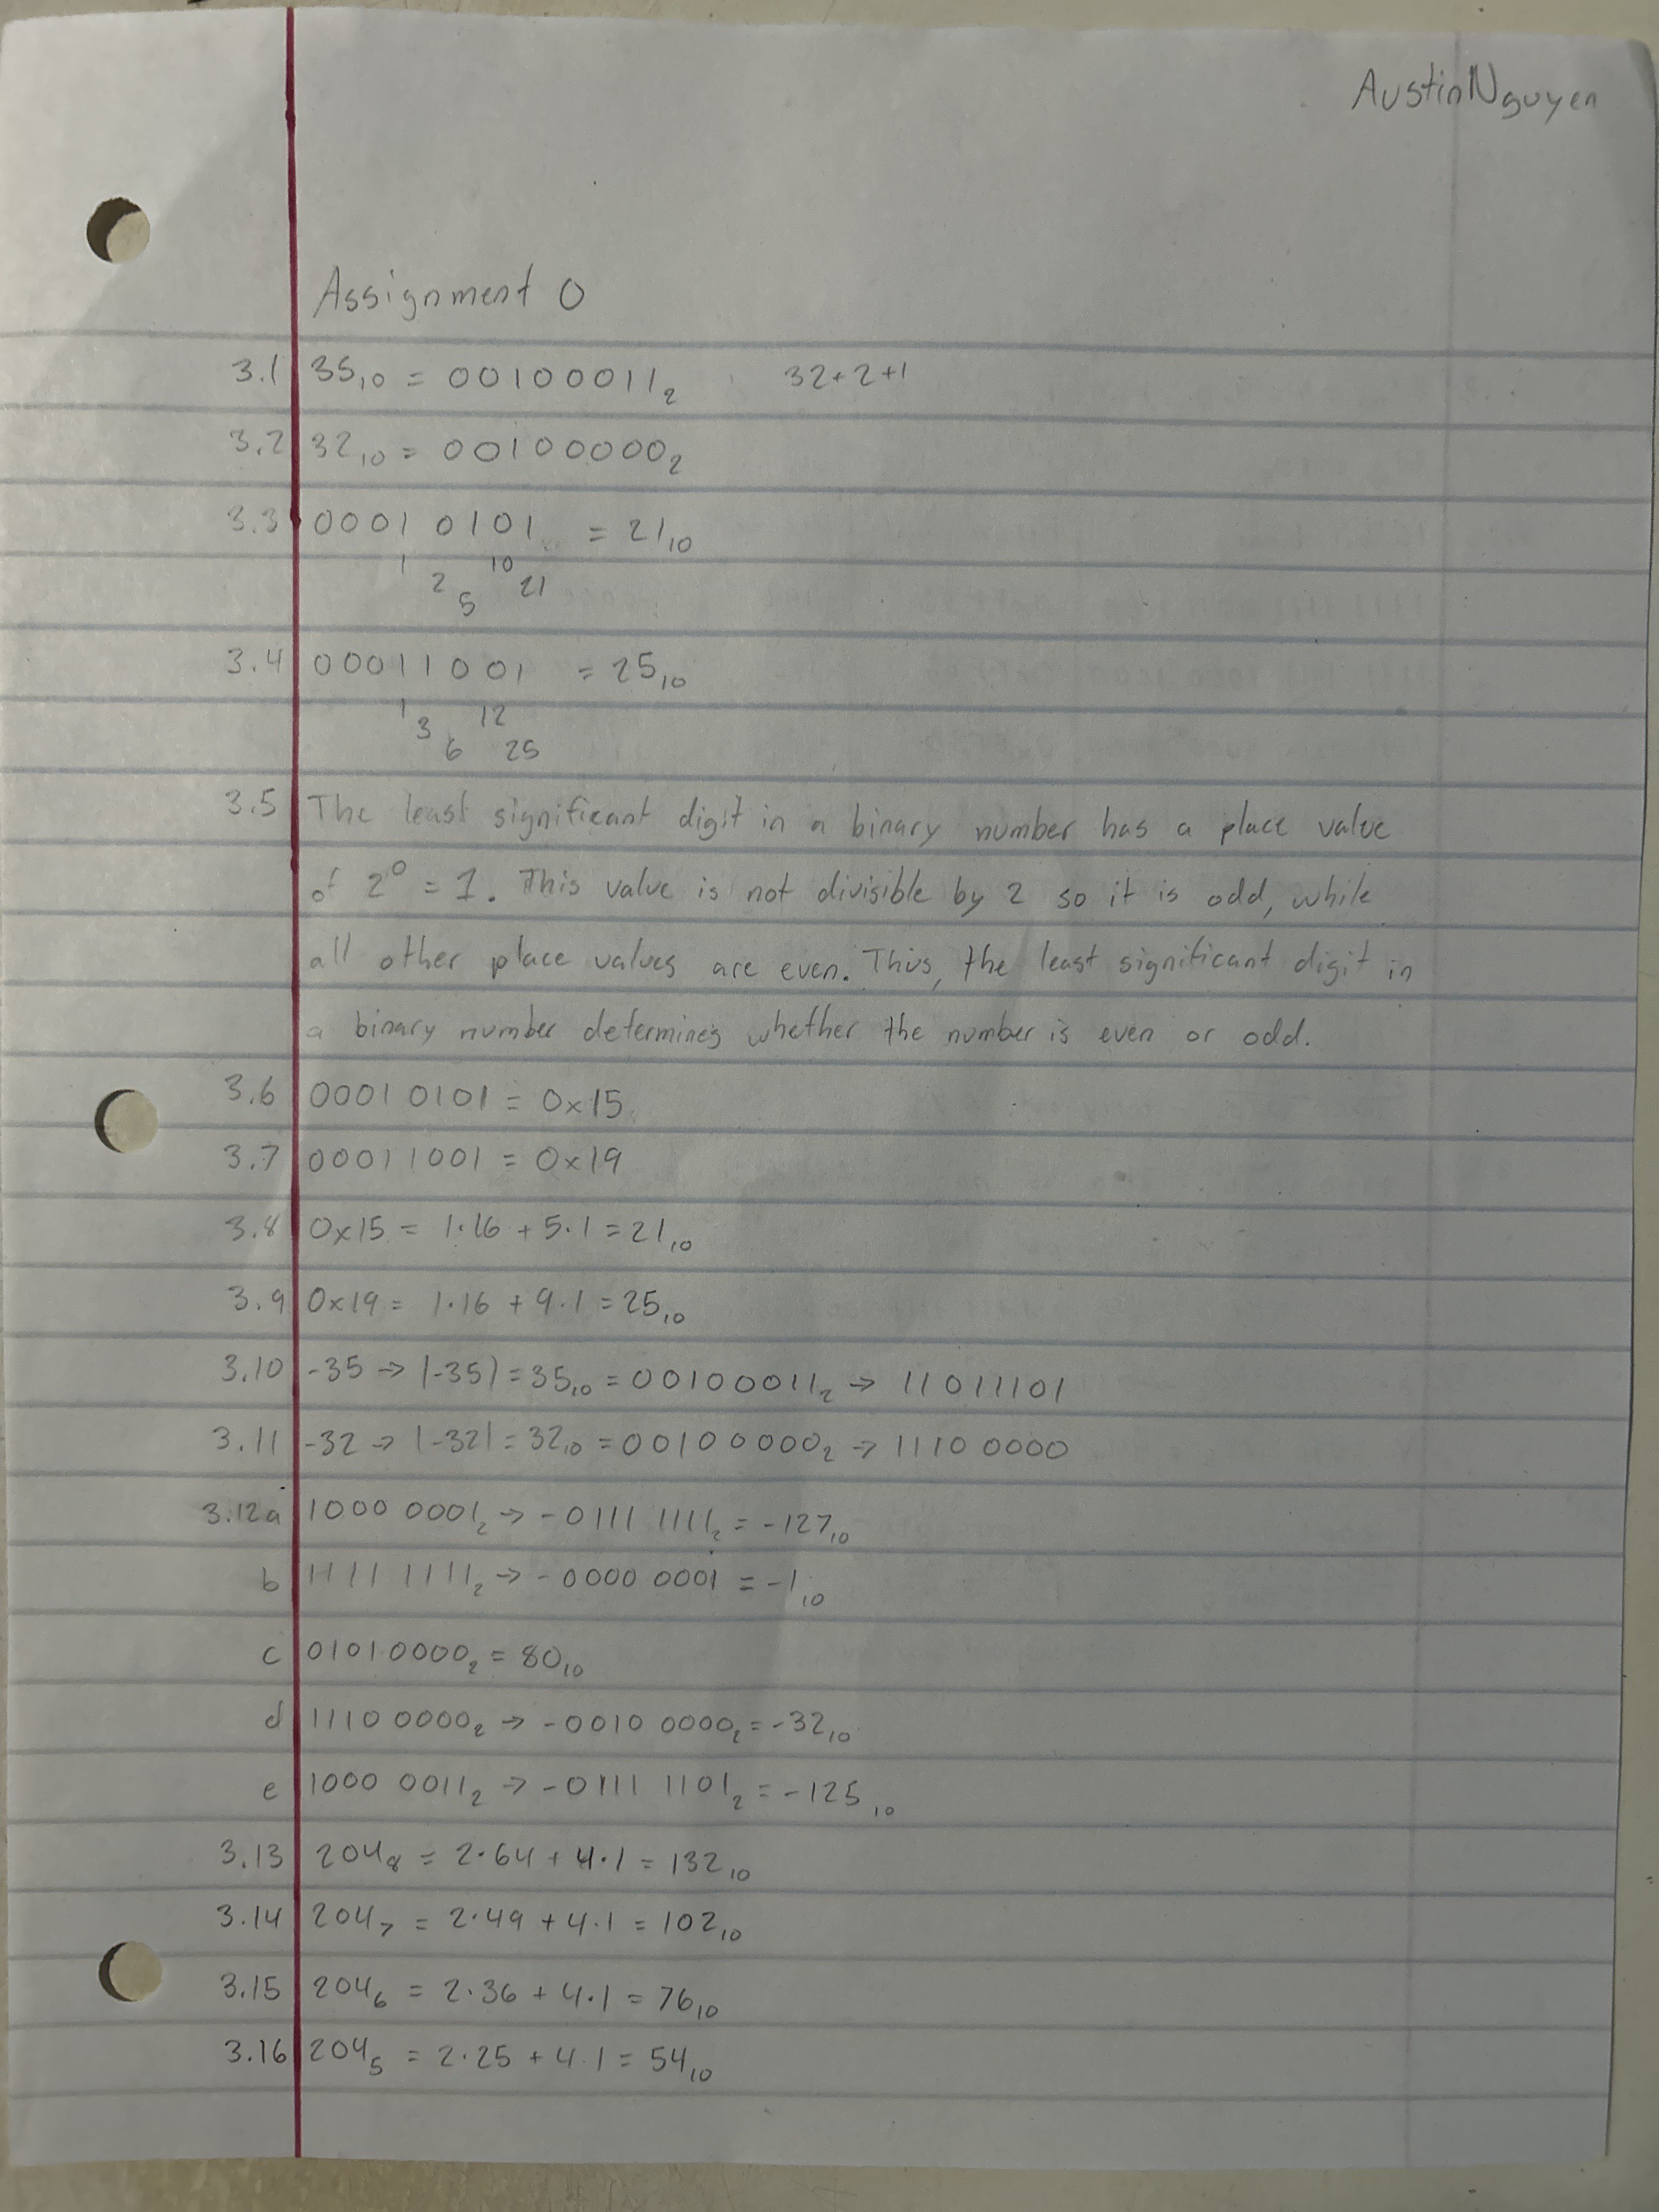 Austin Nguyen
Assignment 0
3.1 35₁₀ = 00100011₂ 32+2+1
3.2 32₁₀ = 00100000₂
3.3 0001 0101 = 21₁₀
1 2 5 10 21
3.4 00011001 = 25₁₀
1 3 6 12 25
3.5 The least significant digit in a binary number has a place value
of 2⁰ = 1. This value is not divisible by 2 so it is odd, while
all other place values are even. Thus, the least significant digit in
a binary number determines whether the number is even or odd.
3.6 0001 0101 = 0x15
3.7 00011001 = 0x19
3.8 0x15 = 1·16 + 5·1 = 21₁₀
3.9 0x19 = 1·16 + 9·1 = 25₁₀
3.10 -35 → |-35| = 35₁₀ = 00100011₂ → 11011101
3.11 -32 → |-32| = 32₁₀ = 0010 0000₂ → 1110 0000
3.12a 1000 0001₂ → -0111 1111₂ = -127₁₀
b 1111 1111₂ → -0000 0001 = -1₁₀
c 0101 0000₂ = 80₁₀
d 1110 0000₂ → -0010 0000₂ = -32₁₀
e 1000 0011₂ → -0111 1101₂ = -125₁₀
3.13 204₈ = 2·64 + 4·1 = 132₁₀
3.14 204₇ = 2·49 + 4·1 = 102₁₀
3.15 204₆ = 2·36 + 4·1 = 76₁₀
3.16 204₅ = 2·25 + 4·1 = 54₁₀